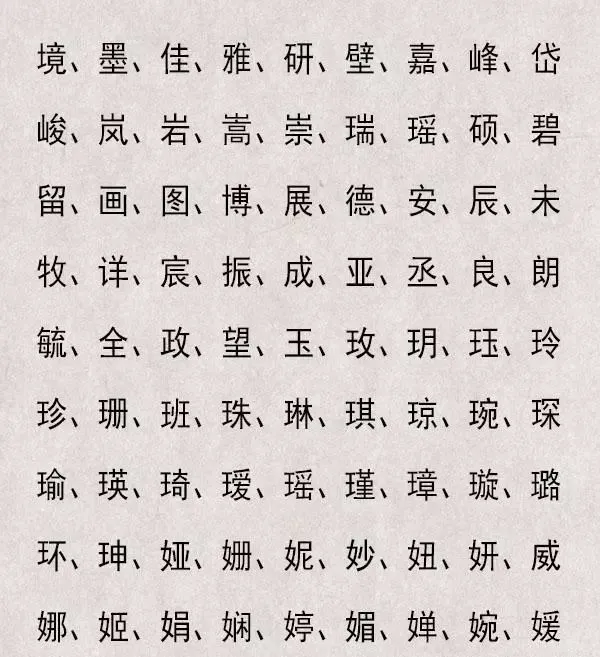 境、墨、佳、雅、研、壁、嘉、峰、岱
峻、岚、岩、嵩、崇、瑞、瑶、硕、碧
留、画、图、博、展、德、安、辰、未
牧、详、宸、振、成、亚、丞、良、朗
毓、全、政、望、玉、玫、玥、珏、玲
珍、珊、班、珠、琳、琪、琼、琬、琛
瑜、瑛、琦、瑷、瑶、瑾、璋、璇、璐
环、珅、娅、姗、妮、妙、妞、妍、威
娜、姬、娟、娴、婷、媚、婵、婉、媛